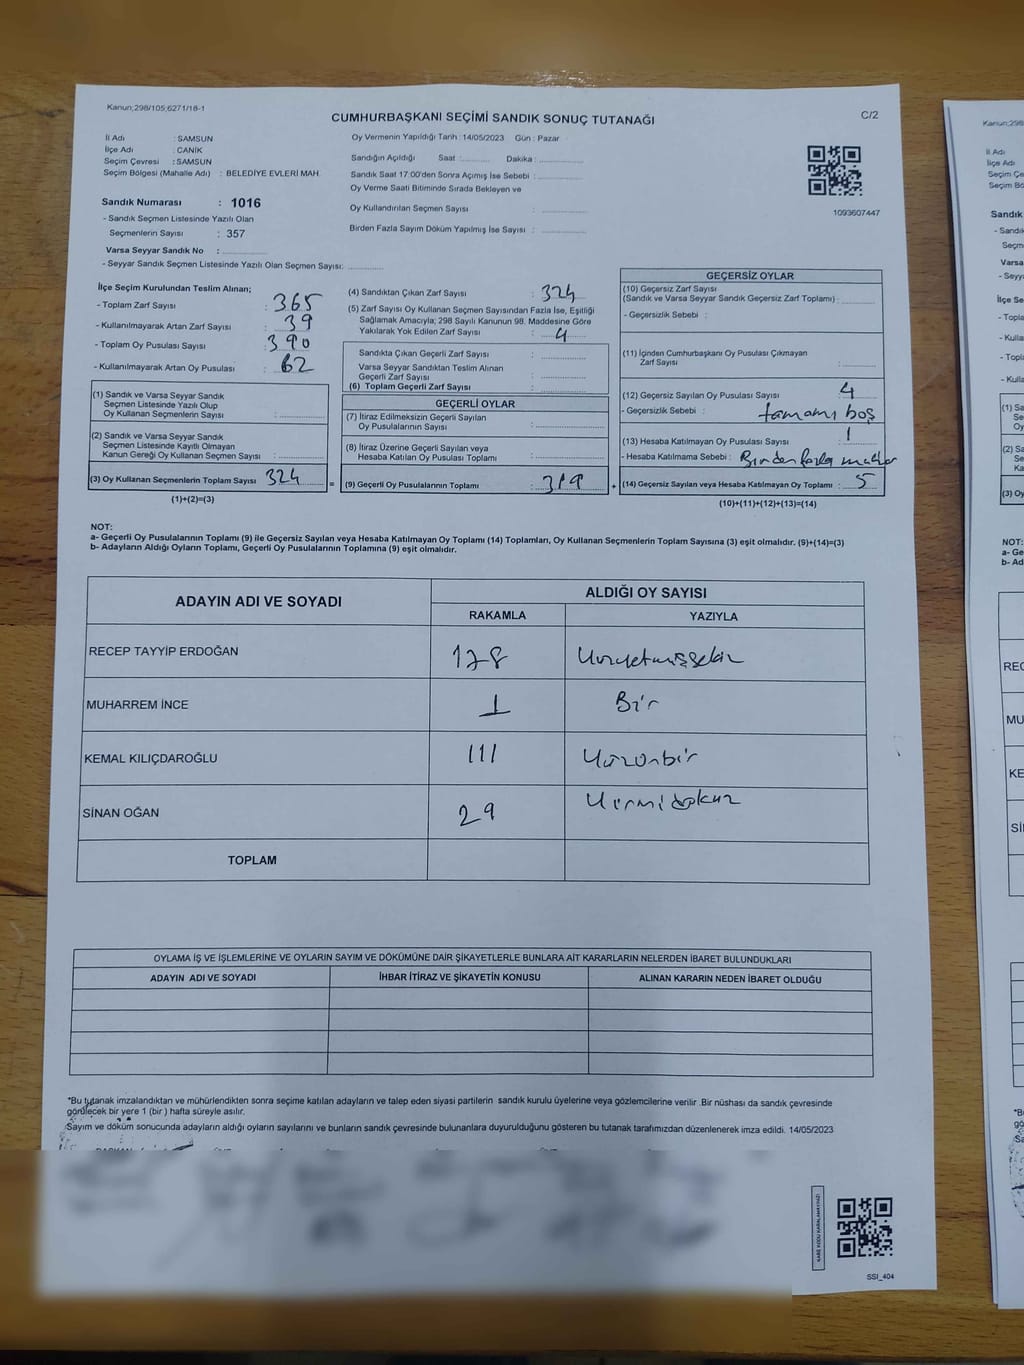 Kanun;298/105;6271/18-1
CUMHURBAŞKANI SEÇİMİ SANDIK SONUÇ TUTANAĞI
C/2
İl Adı : SAMSUN
İlçe Adı : CANİK
Seçim Çevresi : SAMSUN
Seçim Bölgesi (Mahalle Adı) : BELEDİYE EVLERİ MAH.
Sandık Numarası : 1016
- Sandık Seçmen Listesinde Yazılı Olan
Seçmenlerin Sayısı : 357
Varsa Seyyar Sandık No :
- Seyyar Sandık Seçmen Listesinde Yazılı Olan Seçmen Sayısı:
Oy Vermenin Yapıldığı Tarih : 14/05/2023 Gün : Pazar
Sandığın Açıldığı Saat : Dakika :
Sandık Saat 17:00'den Sonra Açımış İse Sebebi :
Oy Verme Saati Bitiminde Sırada Bekleyen ve
Oy Kullandırılan Seçmen Sayısı :
Birden Fazla Sayım Döküm Yapılmış İse Sayısı :
1093607447
İlçe Seçim Kurulundan Teslim Alınan;
- Toplam Zarf Sayısı : 365
- Kullanılmayarak Artan Zarf Sayısı : 39
- Toplam Oy Pusulası Sayısı : 390
- Kullanılmayarak Artan Oy Pusulası : 62
(1) Sandık ve Varsa Seyyar Sandık
Seçmen Listesinde Yazılı Olup
Oy Kullanan Seçmenlerin Sayısı :
(2) Sandık ve Varsa Seyyar Sandık
Seçmen Listesinde Kayıtlı Olmayan
Kanun Gereği Oy Kullanan Seçmen Sayısı :
(3) Oy Kullanan Seçmenlerin Toplam Sayısı 324
(1)+(2)=(3)
(4) Sandıktan Çıkan Zarf Sayısı : 324
(5) Zarf Sayısı Oy Kullanan Seçmen Sayısından Fazla İse, Eşitliği
Sağlamak Amacıyla; 298 Sayılı Kanunun 98. Maddesine Göre
Yakılarak Yok Edilen Zarf Sayısı : 4
Sandıkta Çıkan Geçerli Zarf Sayısı :
Varsa Seyyar Sandıktan Teslim Alınan
Geçerli Zarf Sayısı :
(6) Toplam Geçerli Zarf Sayısı :
GEÇERLİ OYLAR
(7) İtiraz Edilmeksizin Geçerli Sayılan
Oy Pusulalarının Sayısı :
(8) İtiraz Üzerine Geçerli Sayılan veya
Hesaba Katılan Oy Pusulası Toplamı :
= (9) Geçerli Oy Pusulalarının Toplamı : 319 +
GEÇERSİZ OYLAR
(10) Geçersiz Zarf Sayısı
(Sandık ve Varsa Seyyar Sandık Geçersiz Zarf Toplamı) :
- Geçersizlik Sebebi :
(11) İçinden Cumhurbaşkanı Oy Pusulası Çıkmayan
Zarf Sayısı :
(12) Geçersiz Sayılan Oy Pusulası Sayısı : 4
- Geçersizlik Sebebi : tamamı boş
(13) Hesaba Katılmayan Oy Pusulası Sayısı : 1
- Hesaba Katılmama Sebebi : Birden fazla mühür
(14) Geçersiz Sayılan veya Hesaba Katılmayan Oy Toplamı : 5
(10)+(11)+(12)+(13)=(14)
NOT:
a- Geçerli Oy Pusulalarının Toplamı (9) ile Geçersiz Sayılan veya Hesaba Katılmayan Oy Toplamı (14) Toplamları, Oy Kullanan Seçmenlerin Toplam Sayısına (3) eşit olmalıdır. (9)+(14)=(3)
b- Adayların Aldığı Oyların Toplamı, Geçerli Oy Pusulalarının Toplamına (9) eşit olmalıdır.
ADAYIN ADI VE SOYADI
ALDIĞI OY SAYISI
RAKAMLA YAZIYLA
RECEP TAYYİP ERDOĞAN 178 Yüzyetmişsekiz
MUHARREM İNCE 1 Bir
KEMAL KILIÇDAROĞLU 111 Yüzonbir
SİNAN OĞAN 29 Yirmidokuz
TOPLAM
OYLAMA İŞ VE İŞLEMLERİNE VE OYLARIN SAYIM VE DÖKÜMÜNE DAİR ŞİKAYETLERLE BUNLARA AİT KARARLARIN NELERDEN İBARET BULUNDUKLARI
ADAYIN ADI VE SOYADI İHBAR İTİRAZ VE ŞİKAYETİN KONUSU ALINAN KARARIN NEDEN İBARET OLDUĞU
*Bu tutanak imzalandıktan ve mühürlendikten sonra seçime katılan adayların ve talep eden siyasi partilerin sandık kurulu üyelerine veya gözlemcilerine verilir .Bir nüshası da sandık çevresinde
görülecek bir yere 1 (bir ) hafta süreyle asılır.
Sayım ve döküm sonucunda adayların aldığı oyların sayılarını ve bunların sandık çevresinde bulunanlara duyurulduğunu gösteren bu tutanak tarafımızdan düzenlenerek imza edildi. 14/05/2023
KARE KODU KARALAMAYINIZ!
SSI_404